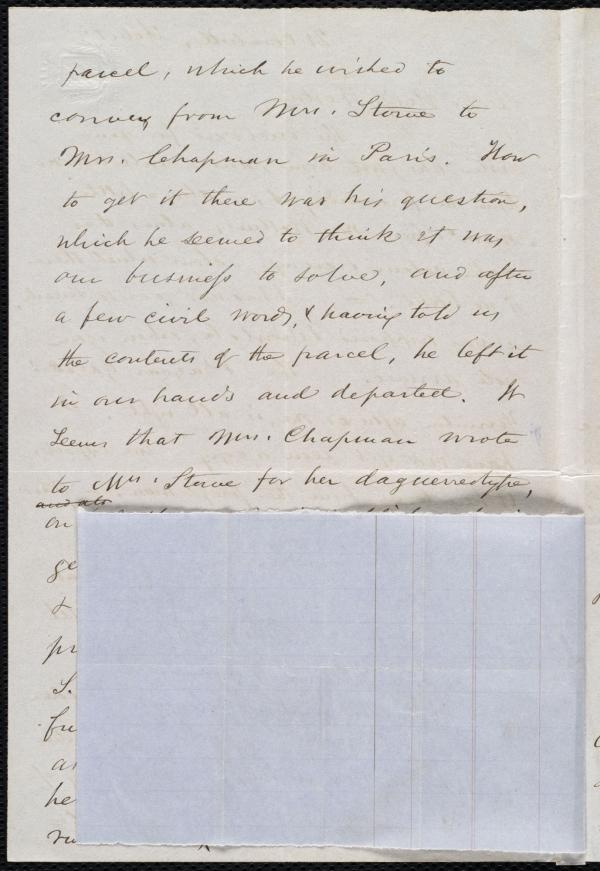 parcel, which he wished to
convey from Mrs. Stowe to
Mrs. Chapman in Paris. How
to get it there was his question,
which he seemed to think it was
our business to solve, and after
a few civil words, & having told us
the contents of the parcel, he left it
in our hands and departed. It
seems that Mrs. Chapman wrote
to Mrs. Stowe for her daguerreotype,
and also
on
ge
&
pr
S.
fu
a
he